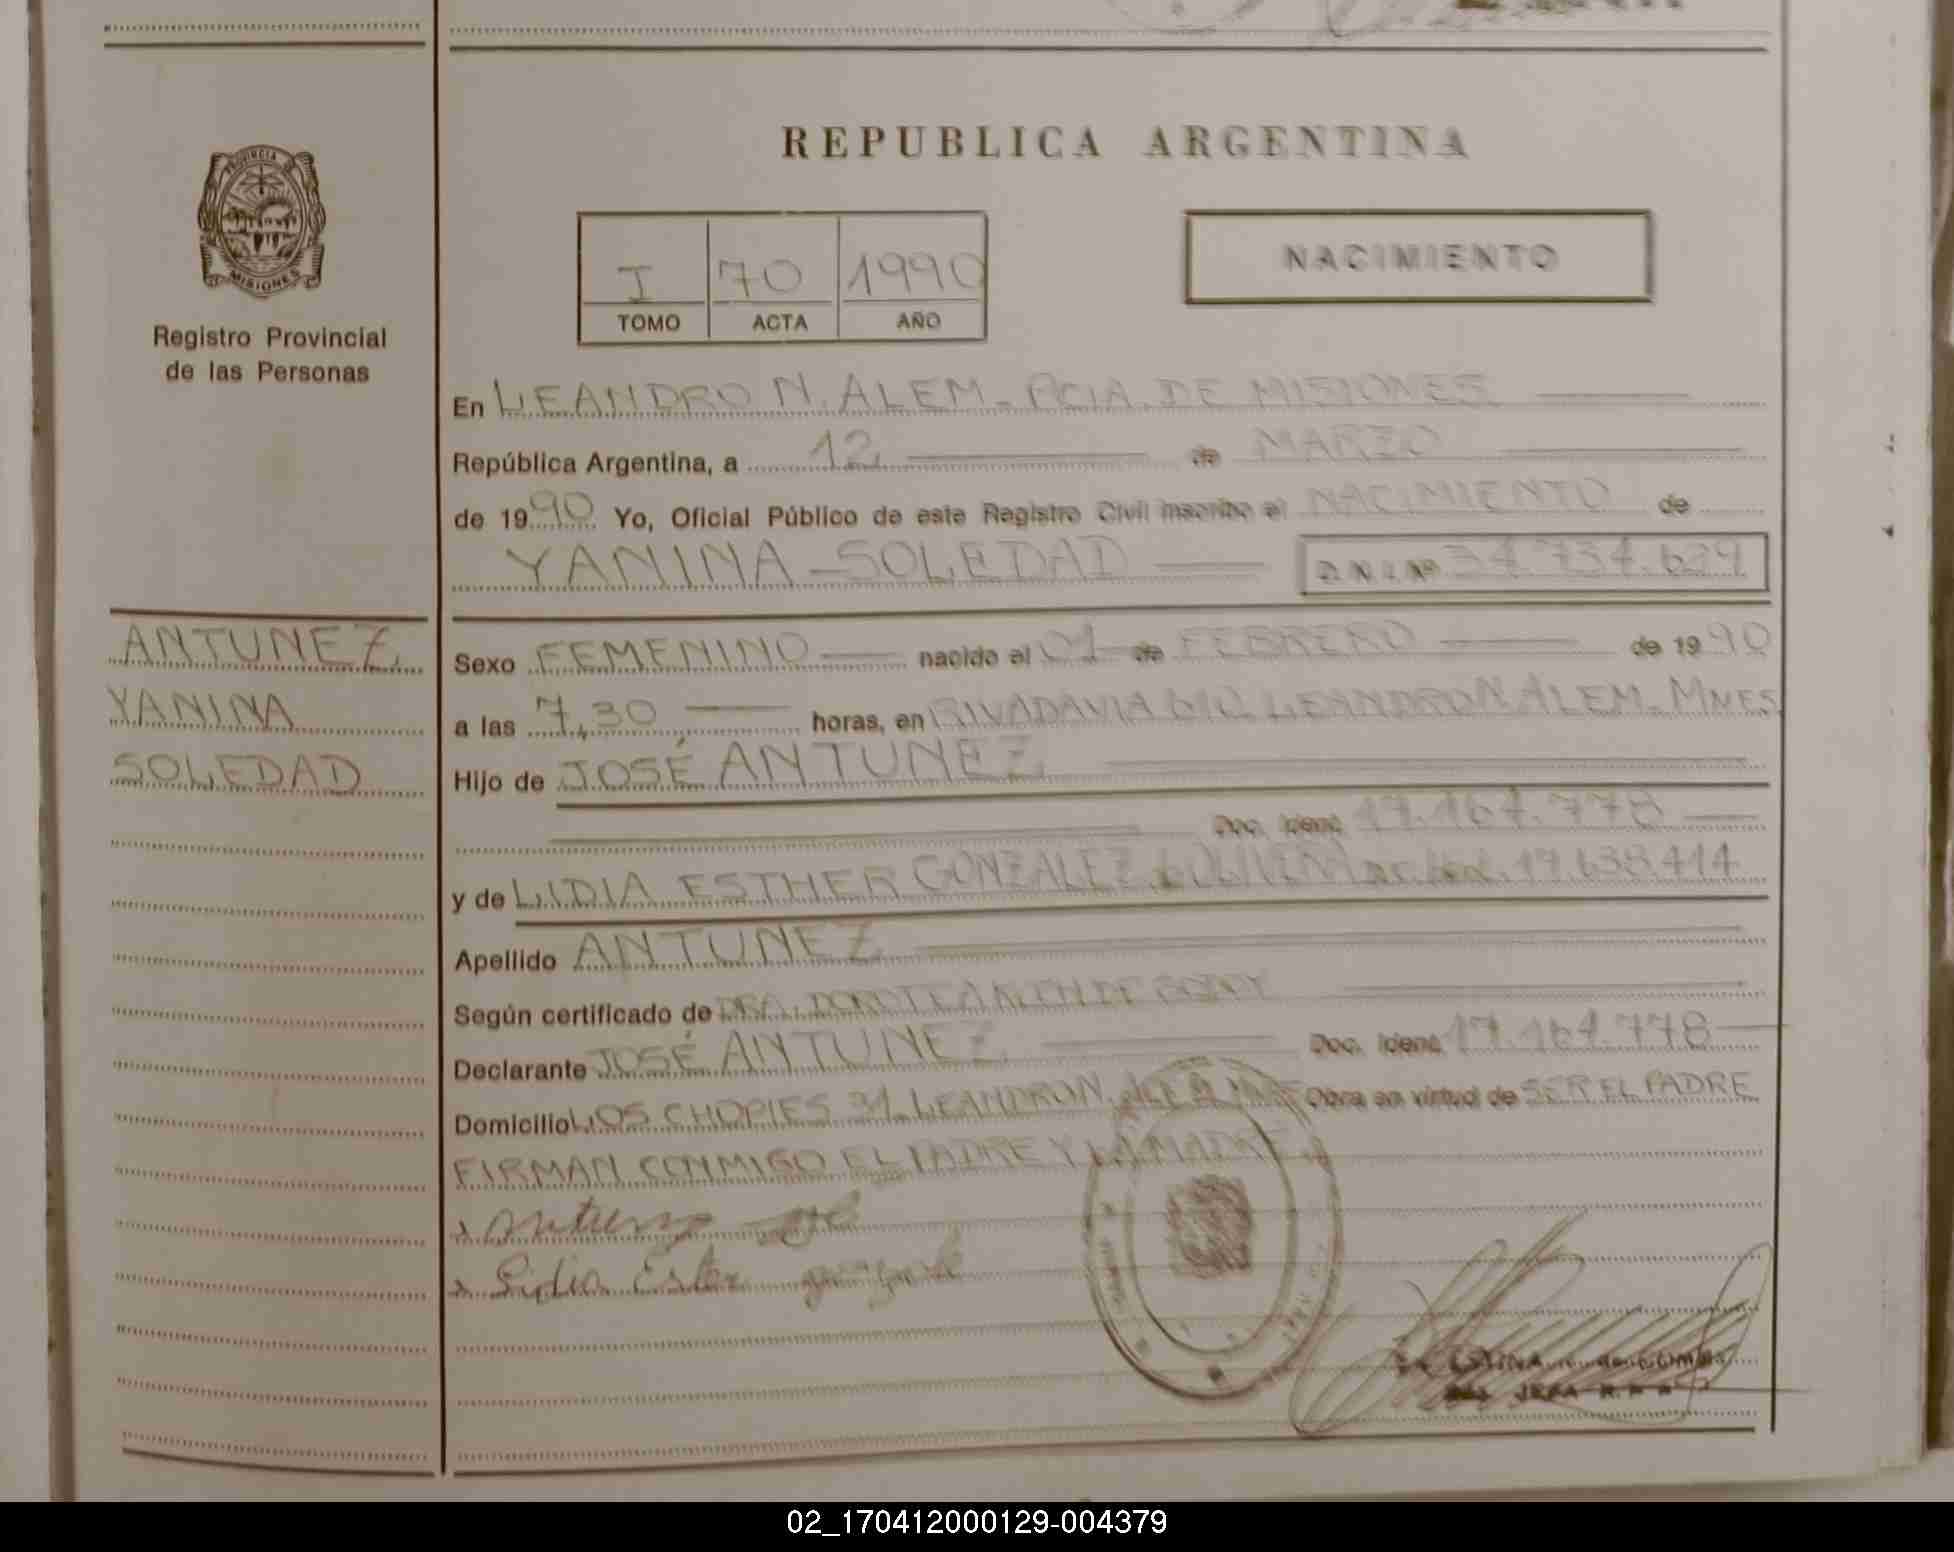 REPUBLICA ARGENTINA
PROVINCIA DE
MISIONES
Registro Provincial
de las Personas
I 70 1990
TOMO ACTA AÑO
NACIMIENTO
En LEANDRO N. ALEM - PCIA. DE MISIONES
República Argentina, a 12 de MARZO
de 1990 Yo, Oficial Público de este Registro Civil inscribo el NACIMIENTO de
YANINA SOLEDAD D.N.I. Nº
ANTUNEZ
YANINA
SOLEDAD
Sexo FEMENINO nacido el 01 de FEBRERO de 1990
a las 7,30 horas, en RIVADAVIA LEANDRO N. ALEM - MNES
Hijo de JOSÉ ANTUNEZ
Doc. Ident.
y de LIDIA ESTHER GONZALEZ Doc. Ident. 17.638.414
Apellido ANTUNEZ
Según certificado de DRA. DOROTEA
Declarante JOSÉ ANTUNEZ Doc. Ident.
Domicilio LOS CHOPIES 31 - LEANDRO N. ALEM Obra en virtud de SER EL PADRE
FIRMAN CONMIGO EL PADRE Y LA MADRE
Lidia Ester
JEFA
02_170412000129-004379